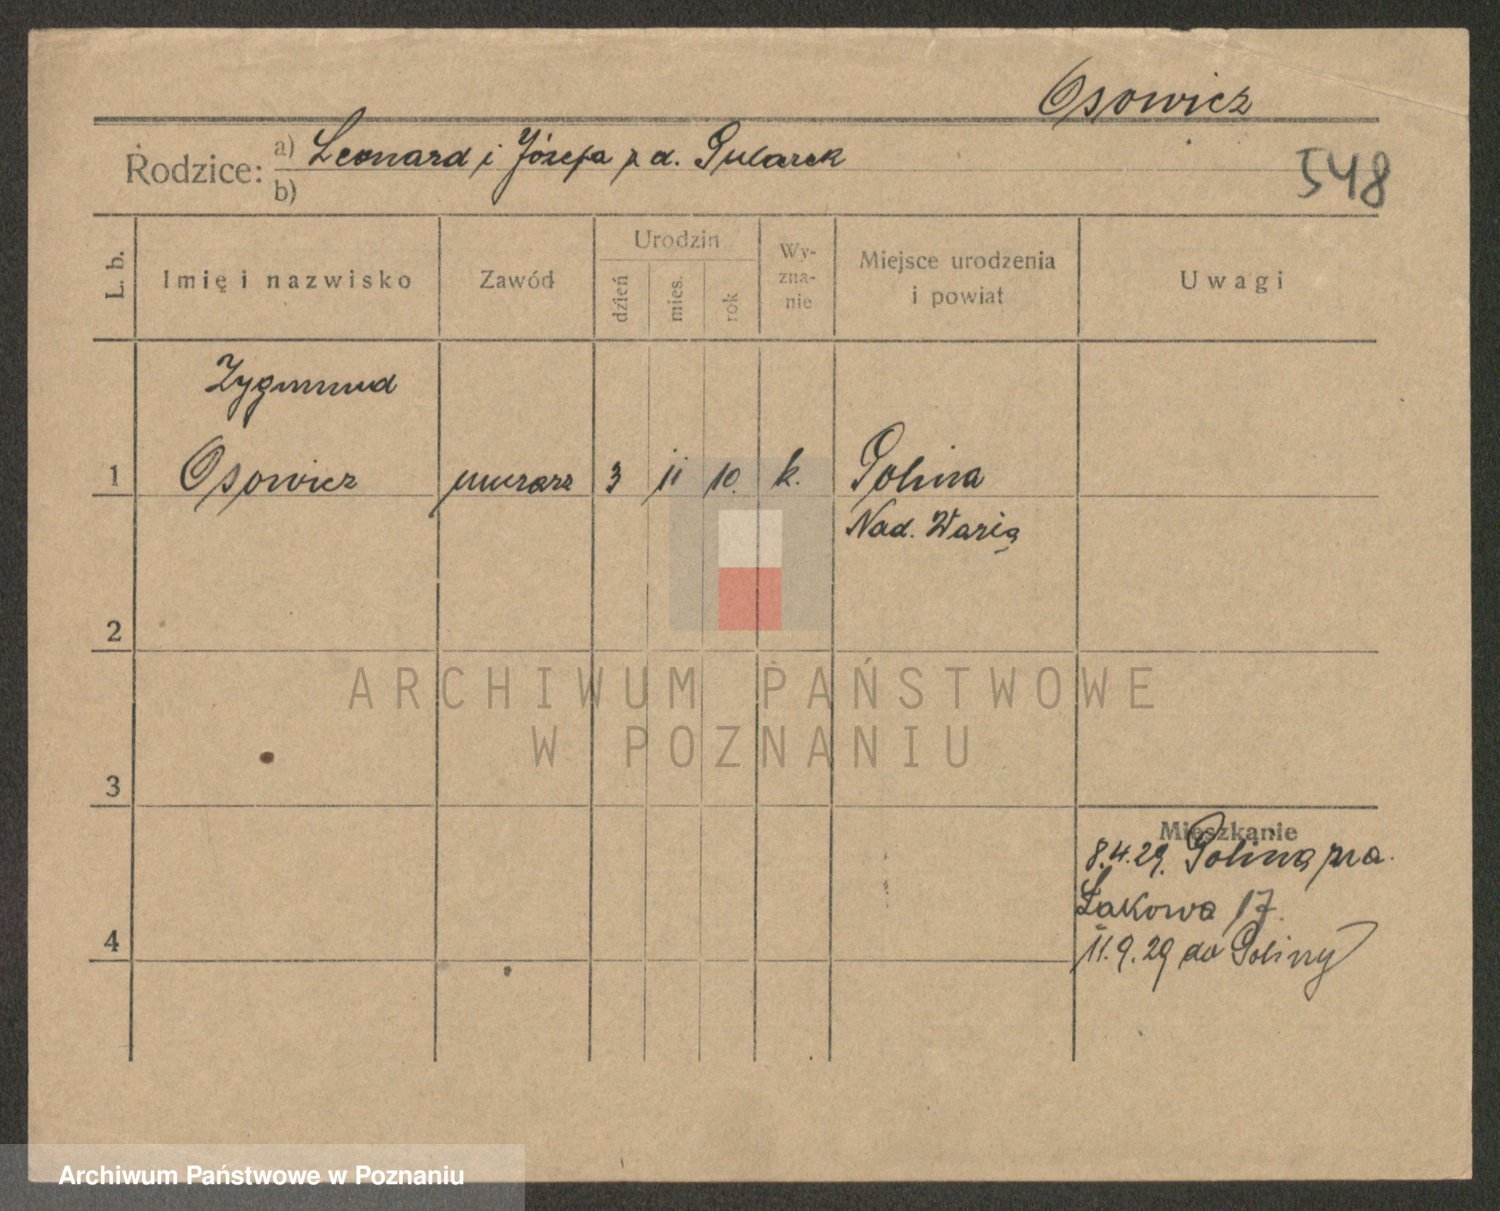 Osowicz
Rodzice: a) Leonard i Józefa z d.
b)
548
L. b.
Imię i nazwisko
Zawód
Urodzin
dzień
mies.
rok
Wy-
zna-
nie
Miejsce urodzenia
i powiat
Uwagi
Zygmund
1 Osowicz murarz 3 11 10. k. Golina
Nad. Wartą
2
ARCHIWUM PAŃSTWOWE
W POZNANIU
3
Mieszkanie
8.4.29. Golina
Łąkowa 17.
4
11.9.29 do Goliny
Archiwum Państwowe w Poznaniu